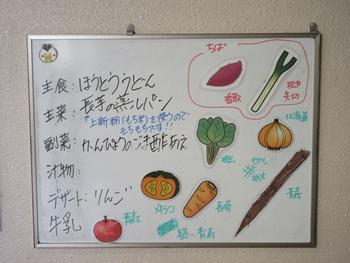 ちば
主食: ほうとううどん
香取
松戸
矢切
主菜: 長芋の蒸しパン
上新粉(もち米)を使うので
もちもちです!!
北海道
副菜: かんぴょうの
酢あえ
汁物:
デザート: りんご
青森
メキシコ
長崎
牛乳